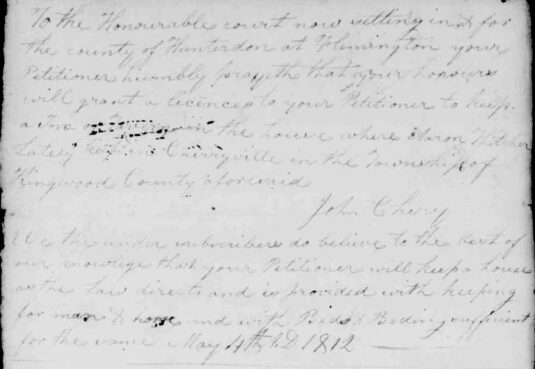 To the Honourable court now setting in & for
the county of Hunterdon at Flemington your
Petitioner humbly prayeth that your honours
will grant a licences to your Petitioner to keep
a Inn in the house where Aaron Thatcher
Lately kept in Cherryville in the Township of
Kingwood County aforesaid
John Chery
We the under subscribers do believe to the best of
our knowlege that your Petitioner will keep a house
as the Law directs and is provided with keeping
for man & horse and with Beds & Beding sufficient
for the same May 4th AD 1812